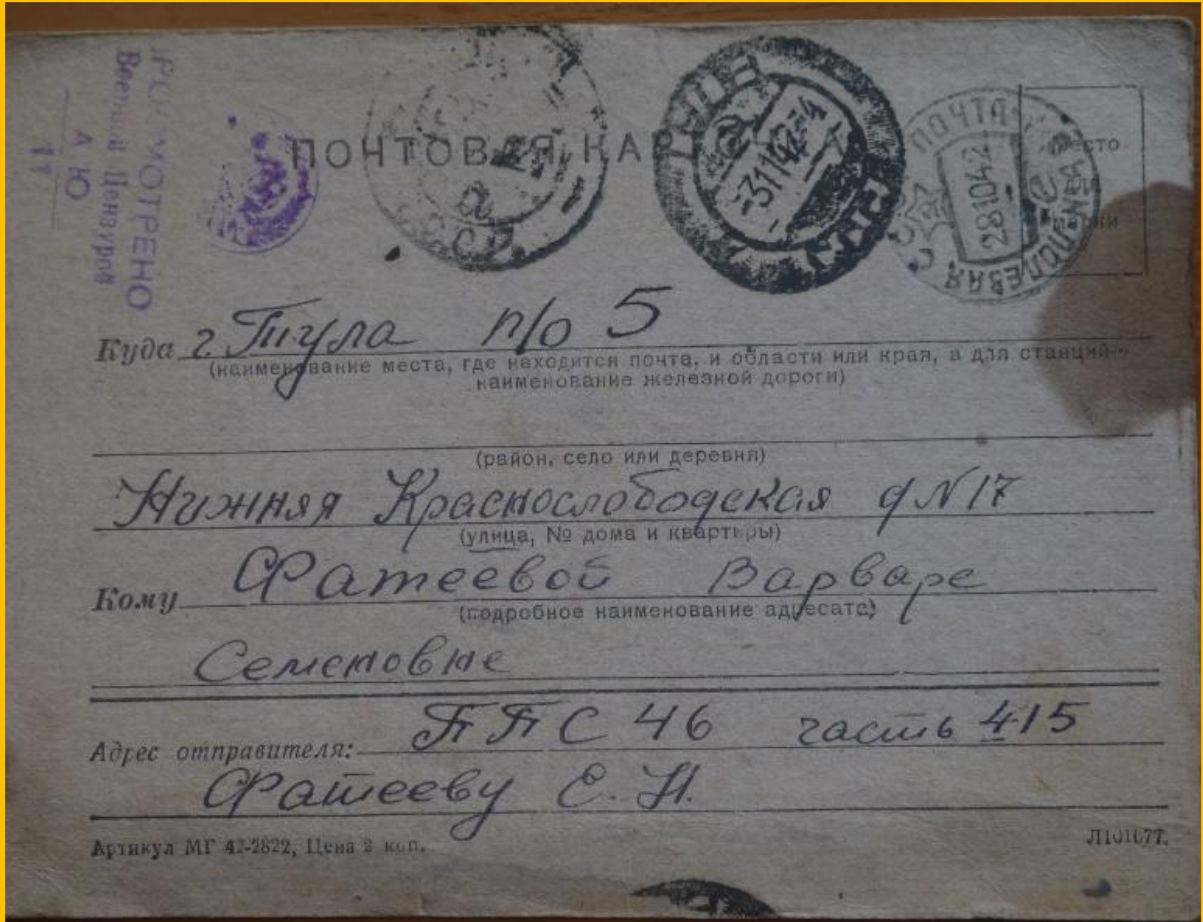 ПОЧТОВАЯ КАР
Место
марки
ПРОСМОТРЕНО
Военной Цензурой
А Ю
17
-3 11 42-4
ПОЧТА
28 10 42
ПОЛЕВАЯ
Куда г. Тула п/о 5
(наименование места, где находится почта, и области или края, а для станций—
наименование железной дороги)
(район, село или деревня)
Нижняя Краснослободская д N 17
(улица, № дома и квартиры)
Кому Фатеевой Варваре
(подробное наименование адресата)
Семеновне
Адрес отправителя: ППС 46 часть 415
Фатееву Е. Н.
Артикул МГ 42-2822, Цена 2 коп.